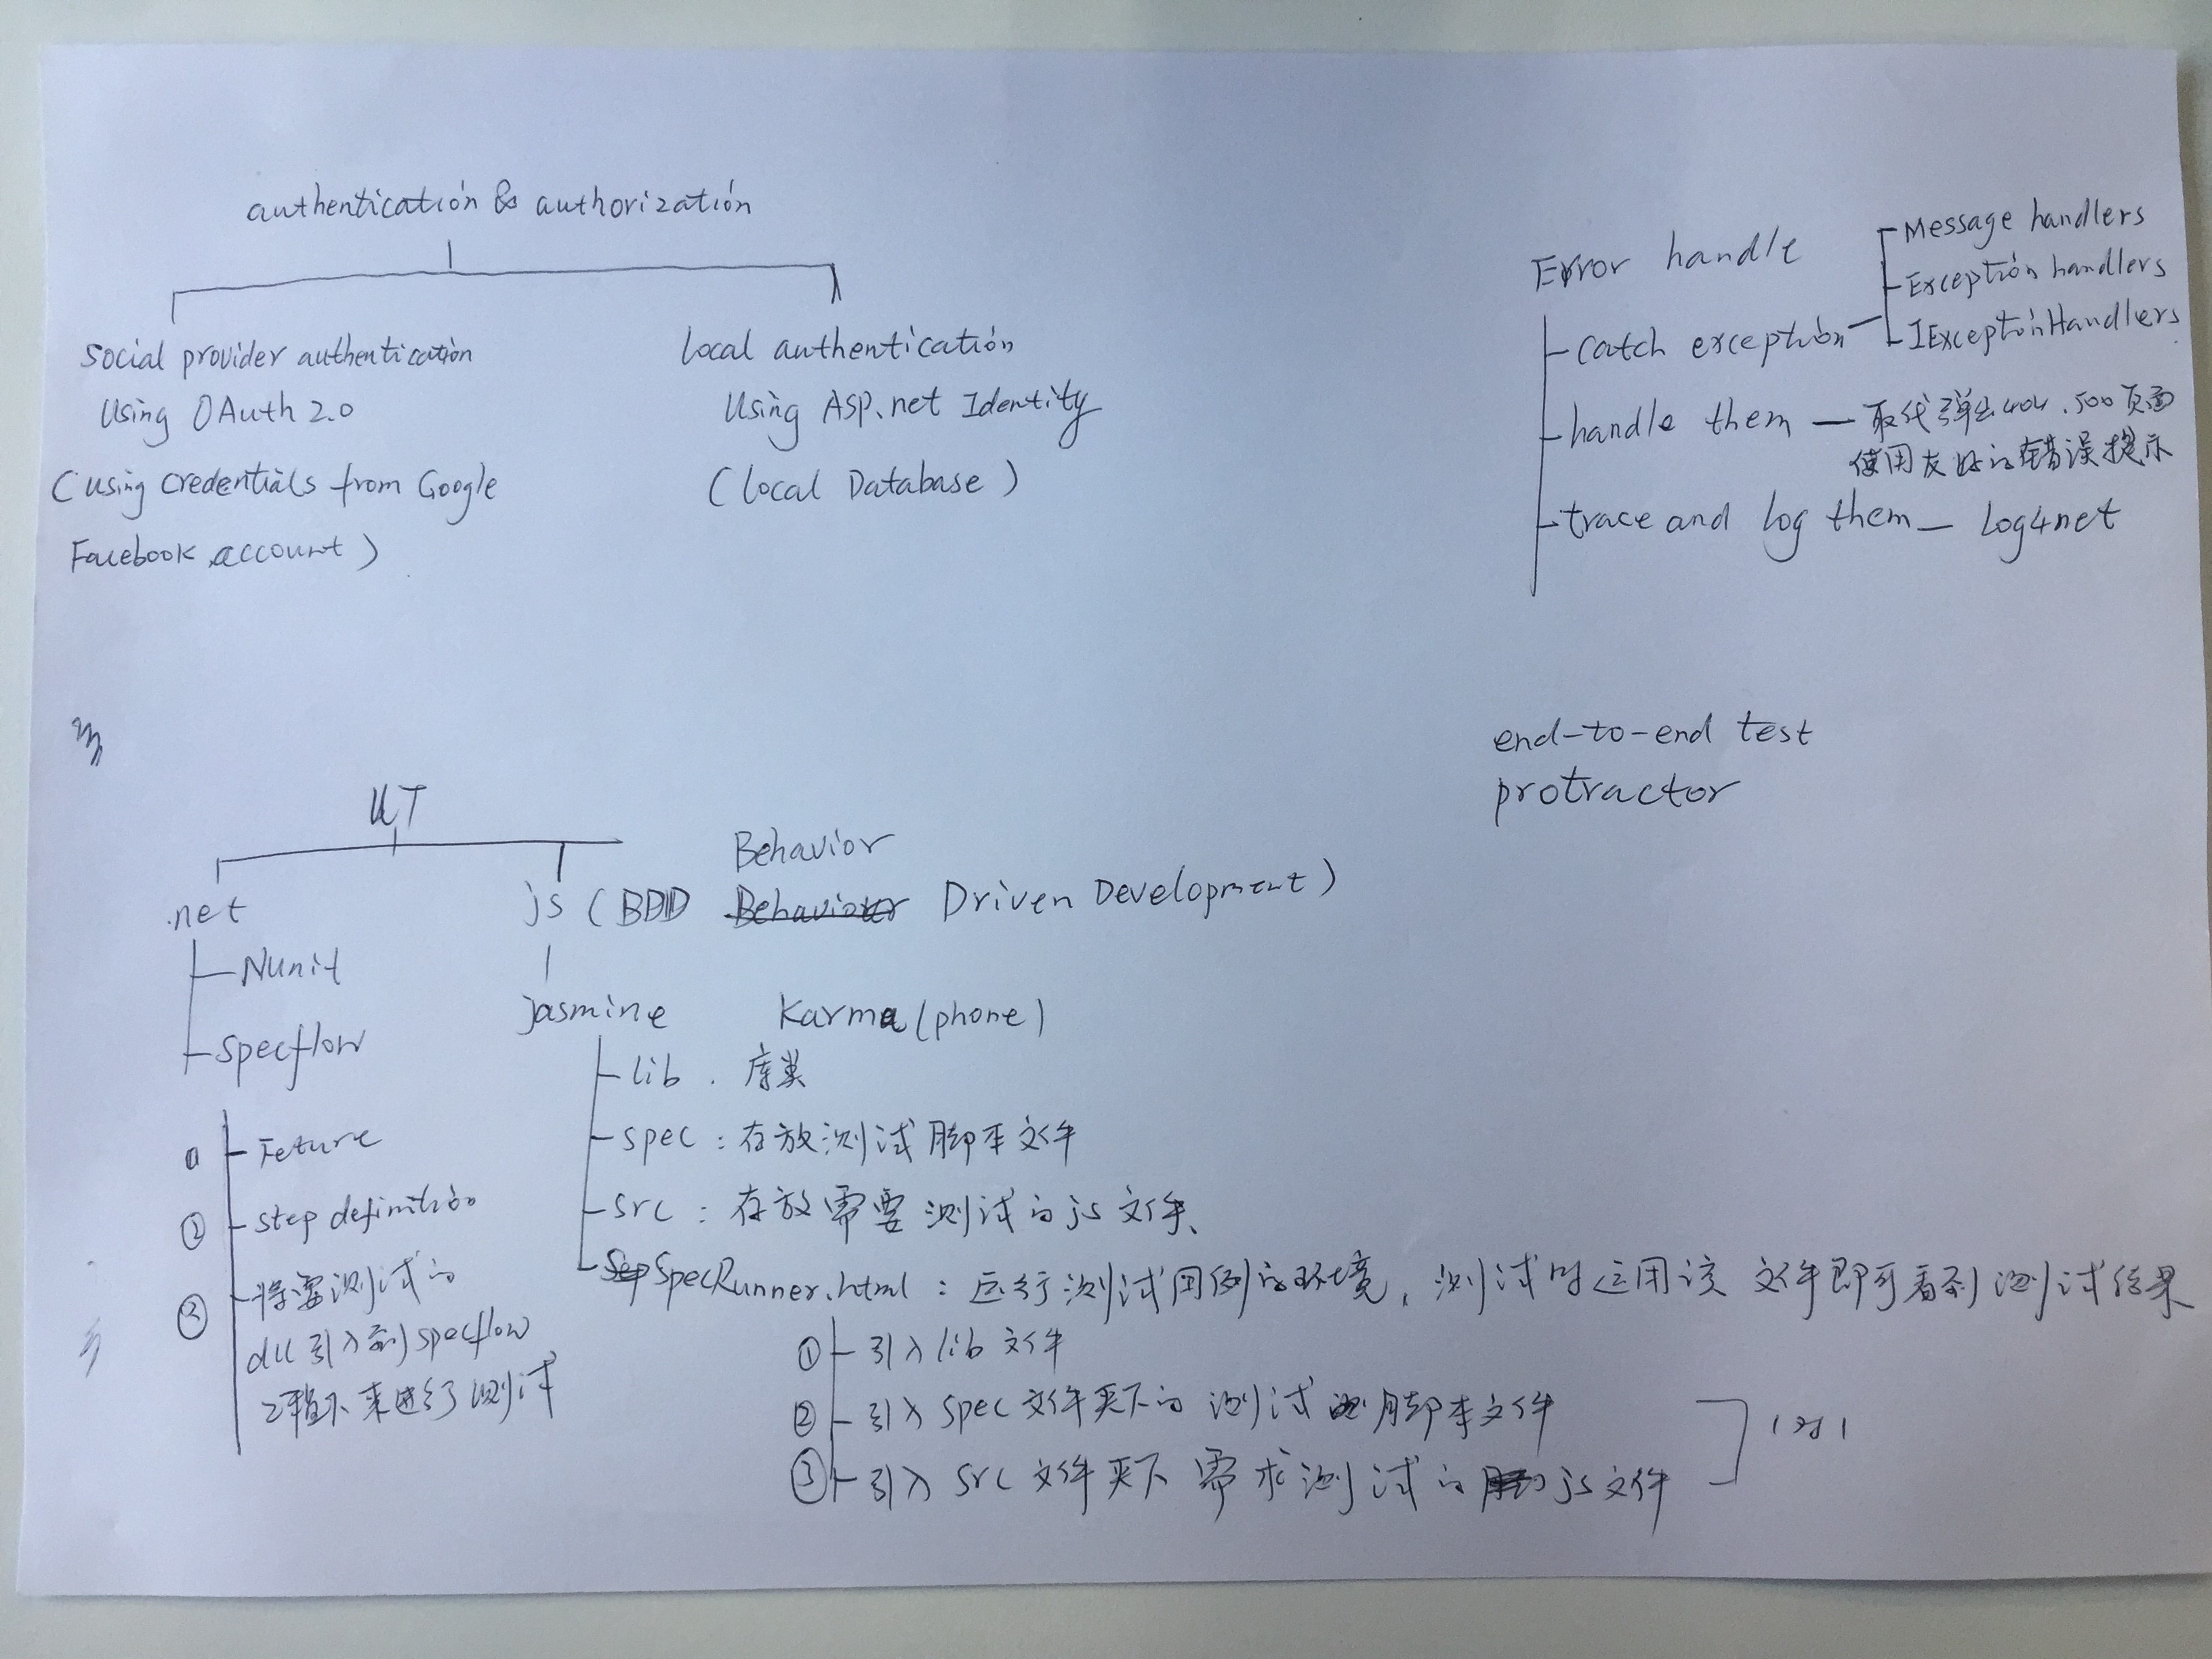 authentication & authorization
Social provider authentication
Using OAuth 2.0
(using credentials from Google
Facebook account)
Local authentication
Using ASP.net Identity
(Local Database)
Error handle
Catch exception
Message handlers
Exception handlers
IExceptionHandlers
handle them — 取代弹出404.500页面
使用友好的错误提示
trace and log them — Log4net
end-to-end test
protractor
UT
.net
Nunit
Specflow
Feture
② step definition
③ 将要测试的
dll引入到specflow
来进行测试
Behavior
js (BDD Driven Development)
Jasmine Karma (phone)
lib . 库
spec : 存放测试脚本文件
src : 存放需要测试的js文件、
SpecRunner.html : 运行测试用例的环境, 测试时运用该文件即可看到测试结果
① 引入lib文件
② 引入spec文件夹下的测试脚本文件
③ 引入src文件夹下需求测试的js文件
1对1